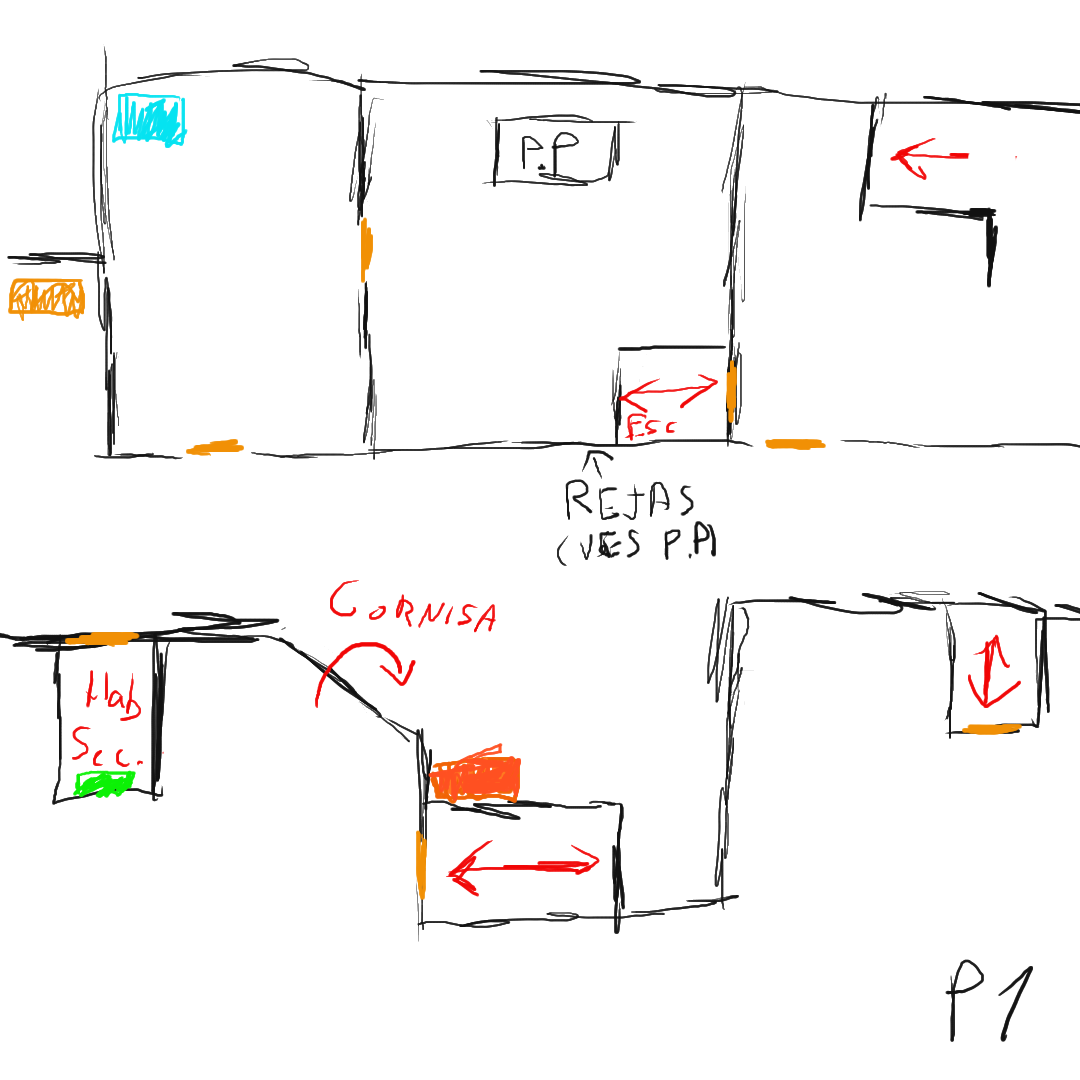 P.P
Esc
REJAS
(VES P.P)
CORNISA
Hab
Sec.
P1